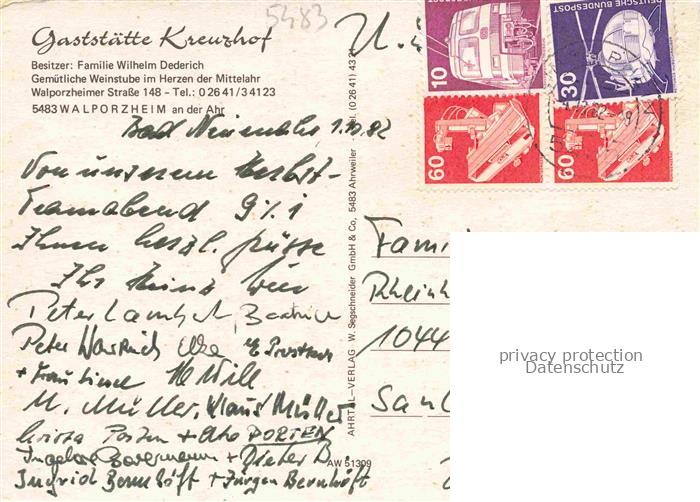 5483
Gaststätte Kreuzhof
Besitzer: Familie Wilhelm Dederich
Gemütliche Weinstube im Herzen der Mittelahr
Walporzheimer Straße 148 - Tel.: 0 26 41 / 3 41 23
5483 WALPORZHEIM an der Ahr
Bad Neuenahr, 1.10.82
Von unserem Herbst-
Teamabend
Ihnen herzl. Grüsse
Ihr Heinz
Peter Lambert, Beatrice
Peter
+ Frau
M. Müller, Klaus Müller
Porten + Otto PORTEN
+ Dieter B.
Ingrid Bernhöft + Jürgen Bernhöft
AHRTAL-VERLAG - W. Segschneider GmbH & Co, 5483 Ahrweiler Tel. (0 26 41) 43
AW 51309
10
DEUTSCHE BUNDESPOST
30
60
60
Fami
Rheinh
1044
San
privacy protection
Datenschutz